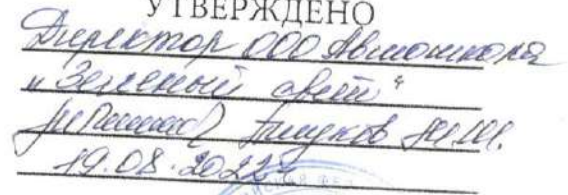 УТВЕРЖДЕНО
Директор ООО Автошкола
"Зеленый свет"
19.08.2022г